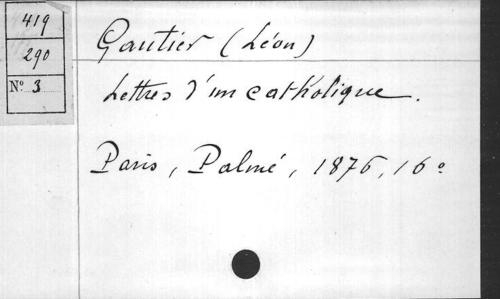 419
290
Nº 3
Gautier (Léon)
Lettres d'un catholique.
Paris, Palmé, 1876, 16º